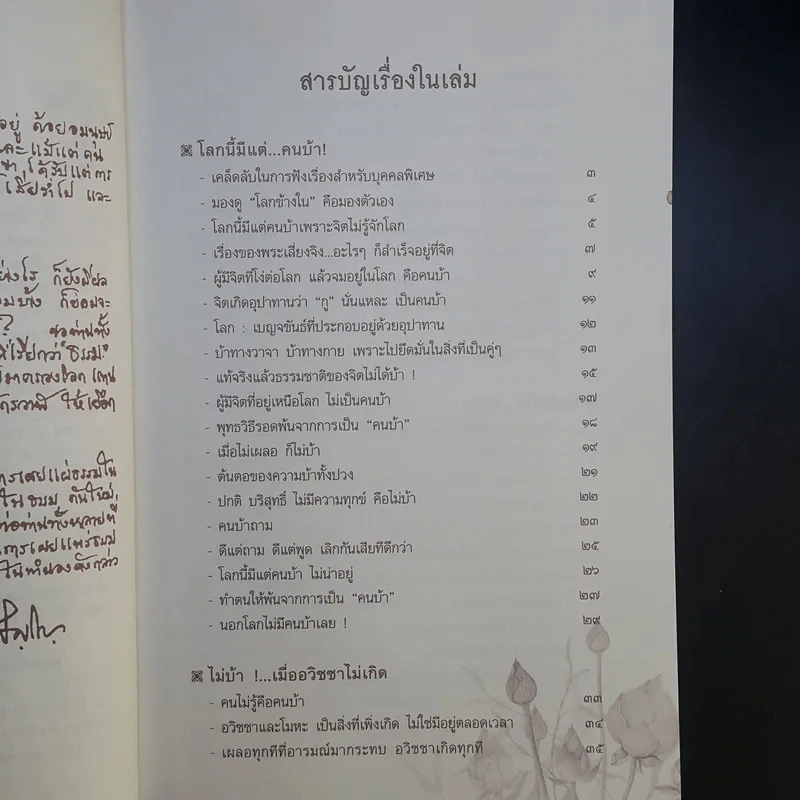 อยู่ ด้วยอมนุษย์
และแม้แต่คน
ได้รับแต่การ
และ
ก็ยังมีผล
บ้าง ก็ย่อมจะ
ขอท่านทั้ง
ที่เรียกว่า "ธรรม"
มาครองโลก แทน
ให้เลือก
การเผยแผ่ธรรมใน
ในธรรม กันใหม่,
ต่อท่านทั้งหลายที่
การเผยแพร่ธรรม
ในทำนองดังกล่าว
สารบัญเรื่องในเล่ม
โลกนี้มีแต่...คนบ้า!
- เคล็ดลับในการฟังเรื่องสำหรับบุคคลพิเศษ ๓
- มองดู “โลกข้างใน” คือมองตัวเอง ๔
- โลกนี้มีแต่คนบ้าเพราะจิตไม่รู้จักโลก ๕
- เรื่องของพระเสี่ยงจิง...อะไรๆ ก็สำเร็จอยู่ที่จิต ๗
- ผู้มีจิตที่โง่ต่อโลก แล้วจมอยู่ในโลก คือคนบ้า ๙
- จิตเกิดอุปาทานว่า “กู” นั่นแหละ เป็นคนบ้า ๑๑
- โลก : เบญจขันธ์ที่ประกอบอยู่ด้วยอุปาทาน ๑๒
- บ้าทางวาจา บ้าทางกาย เพราะไปยึดมั่นในสิ่งที่เป็นคู่ๆ ๑๓
- แท้จริงแล้วธรรมชาติของจิตไม่ได้บ้า ! ๑๕
- ผู้มีจิตที่อยู่เหนือโลก ไม่เป็นคนบ้า ๑๗
- พุทธวิธีรอดพ้นจากการเป็น “คนบ้า” ๑๘
- เมื่อไม่เผลอ ก็ไม่บ้า ๑๙
- ต้นตอของความบ้าทั้งปวง ๒๑
- ปกติ บริสุทธิ์ ไม่มีความทุกข์ คือไม่บ้า ๒๒
- คนบ้าถาม ๒๓
- ดีแต่ถาม ดีแต่พูด เลิกกันเสียทีดีกว่า ๒๕
- โลกนี้มีแต่คนบ้า ไม่น่าอยู่ ๒๖
- ทำตนให้พ้นจากการเป็น “คนบ้า” ๒๗
- นอกโลกไม่มีคนบ้าเลย ! ๒๙
ไม่บ้า !...เมื่ออวิชชาไม่เกิด
- คนไม่รู้คือคนบ้า ๓๓
- อวิชชาและโมหะ เป็นสิ่งที่เพิ่งเกิด ไม่ใช่มีอยู่ตลอดเวลา ๓๔
- เผลอทุกทีที่อารมณ์มากระทบ อวิชชาเกิดทุกที ๓๕